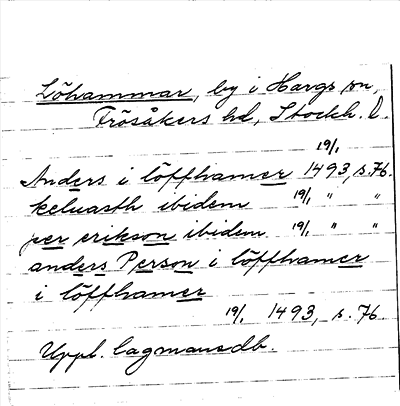 Löhammar, by i Hargs sn,
Frösåkers hd, Stockh. l.
19/1
Anders i löffhamer 1493, s. 76.
keluasth ibidem 19/1 " "
per erikson ibidem 19/1 " "
anders Person i löffhamer
i löffhamer
19/1 1493, s. 76.
Uppl. lagmansdb.